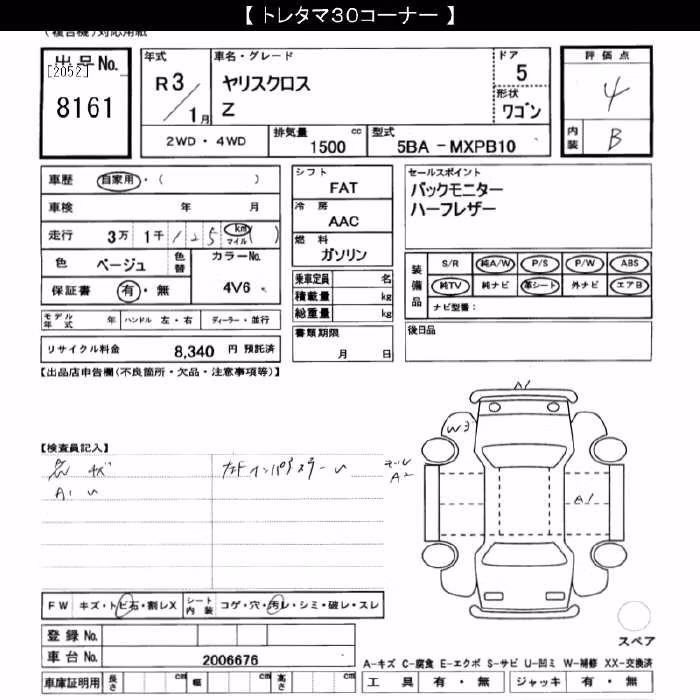 【 トレタマ30コーナー 】
(複合機)対応用紙
出品No.
[2052]
8161
年式
R3/1月
車名・グレード
ヤリスクロス
Z
ドア
5
形状
ワゴン
評価点
4
内装
B
2WD・4WD
排気量 1500 cc
型式 5BA-MXPB10
車歴 自家用・( )
車検 年 月
走行 3万 1千 125 km マイル ( )
色 ベージュ 色替
カラーNo.
4V6
保証書 有・無
シフト
FAT
冷房
AAC
燃料
ガソリン
乗車定員 名
積載量 kg
総重量 kg
書類期限
月 日
セールスポイント
バックモニター
ハーフレザー
装備品
S/R 純A/W P/S P/W ABS
純TV 純ナビ 革シート 外ナビ エアB
ナビ型番:
後日品
モデル年式 年 ハンドル 左・右 ディーラー・並行
リサイクル料金 8,340 円 預託済
【出品店申告欄(不良箇所・欠品・注意事項等)】
【検査員記入】
A1
A1
W3
A2
A1
FW キズ・トビ石・割レX
シート内装 コゲ・穴・汚レ・シミ・破レ・スレ
登録No.
車台No. 2006676
車庫証明用 長さ cm 幅 cm 高さ cm
スペア
A-キズ C-腐食 E-エクボ S-サビ U-凹ミ W-補修 XX-交換済
工具 有・無 ジャッキ 有・無